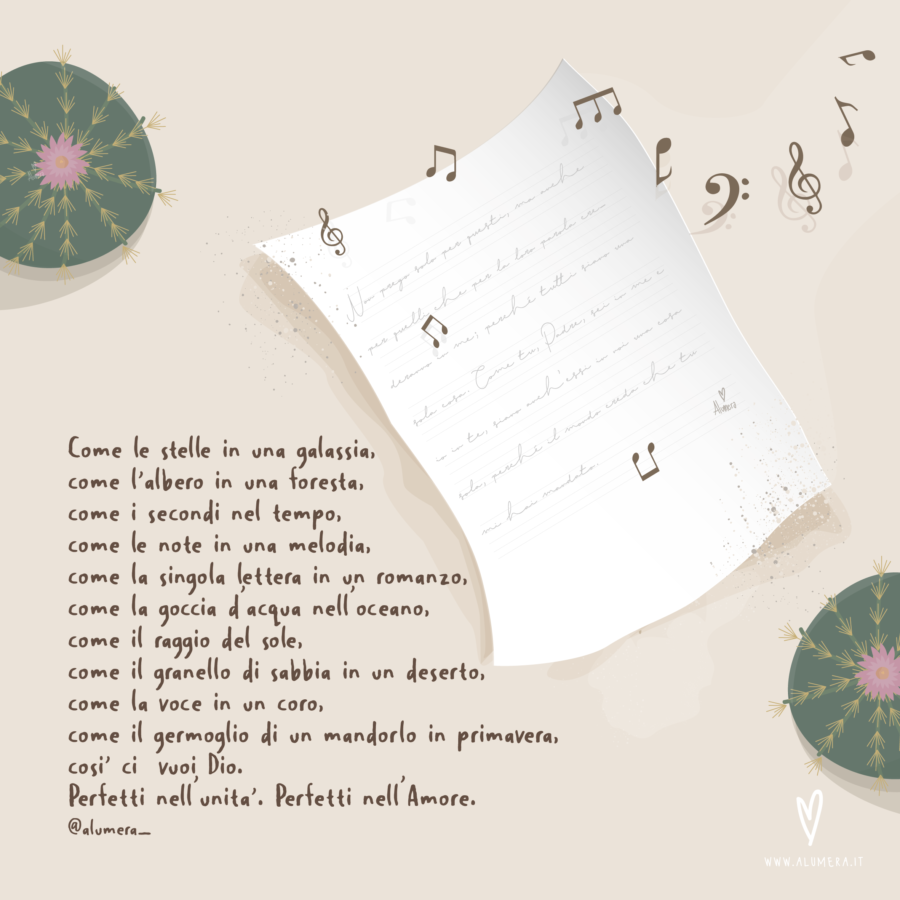 Non prego solo per questi, ma anche
per quelli che per la loro parola
in me; perché tutti siano una
sola cosa. Come tu, Padre, sei in me e
io in te, siano anch'essi in noi una cosa
sola, perché il mondo creda che tu
mi hai mandato.
Alumera
Come le stelle in una galassia,
come l'albero in una foresta,
come i secondi nel tempo,
come le note in una melodia,
come la singola lettera in un romanzo,
come la goccia d'acqua nell'oceano,
come il raggio del sole,
come il granello di sabbia in un deserto,
come la voce in un coro,
come il germoglio di un mandorlo in primavera,
cosi' ci vuoi, Dio.
Perfetti nell'unita'. Perfetti nell'Amore.
@alumera_
WWW.ALUMERA.IT